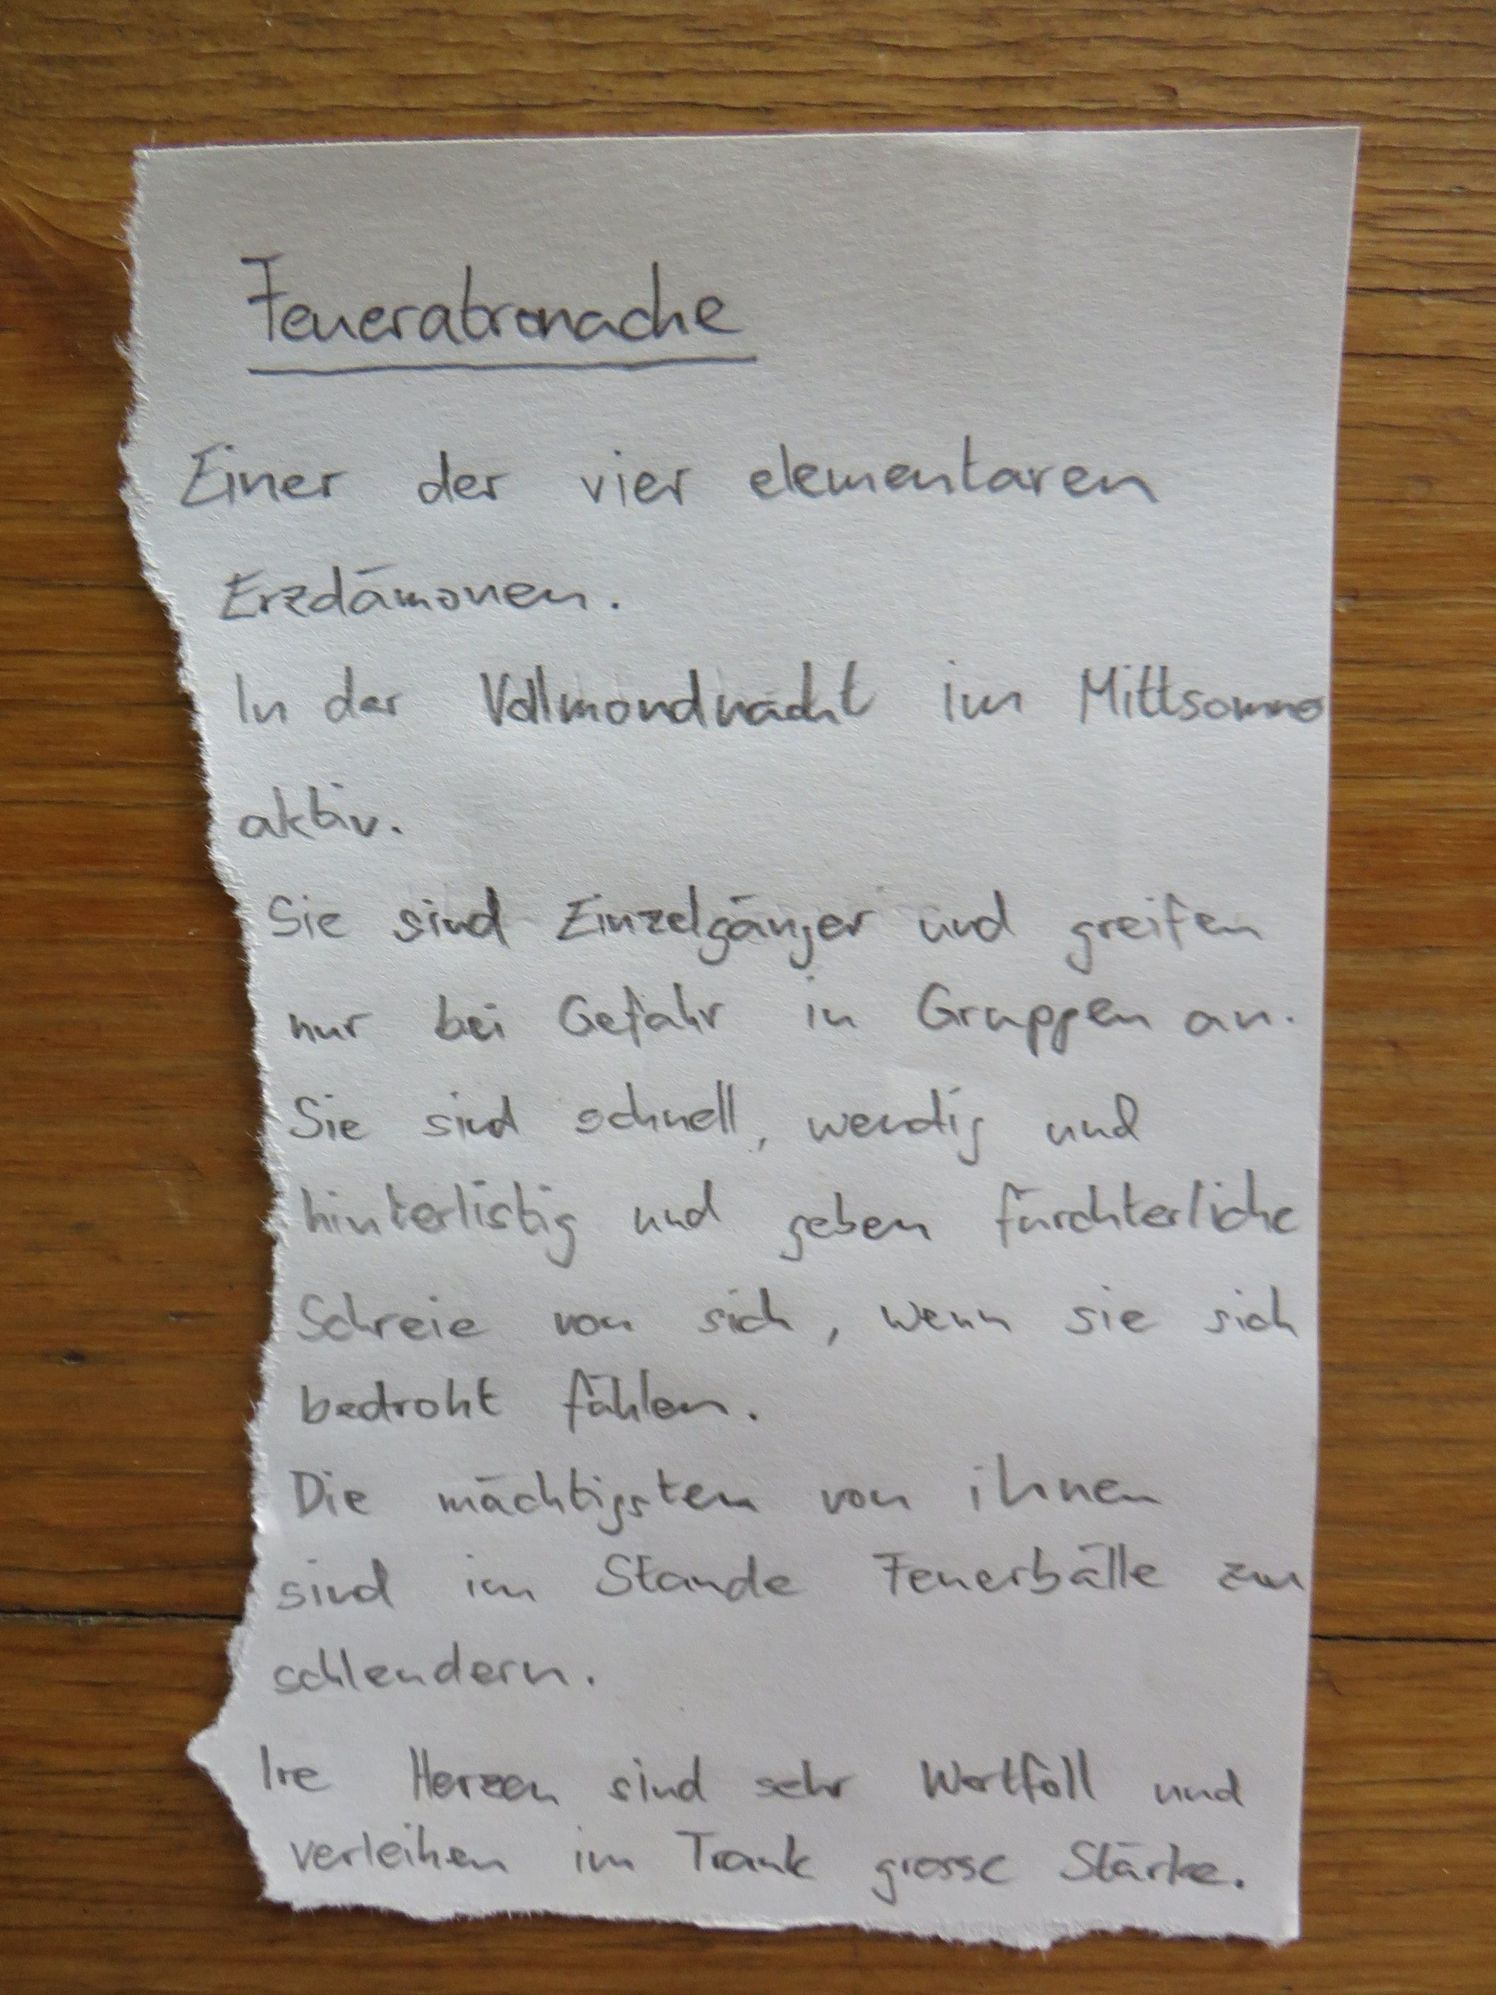 Feueratronache
Einer der vier elementaren
Erzdämonen.
In der Vollmondnacht im Mittsommer
aktiv.
Sie sind Einzelgänger und greifen
nur bei Gefahr in Gruppen an.
Sie sind schnell, wendig und
hinterlistig und geben fürchterliche
Schreie von sich, wenn sie sich
bedroht fühlen.
Die mächtigsten von ihnen
sind im Stande Feuerbälle zu
schlendern.
Ire Herzen sind sehr Wertfoll und
verleihen im Trank grosse Stärke.